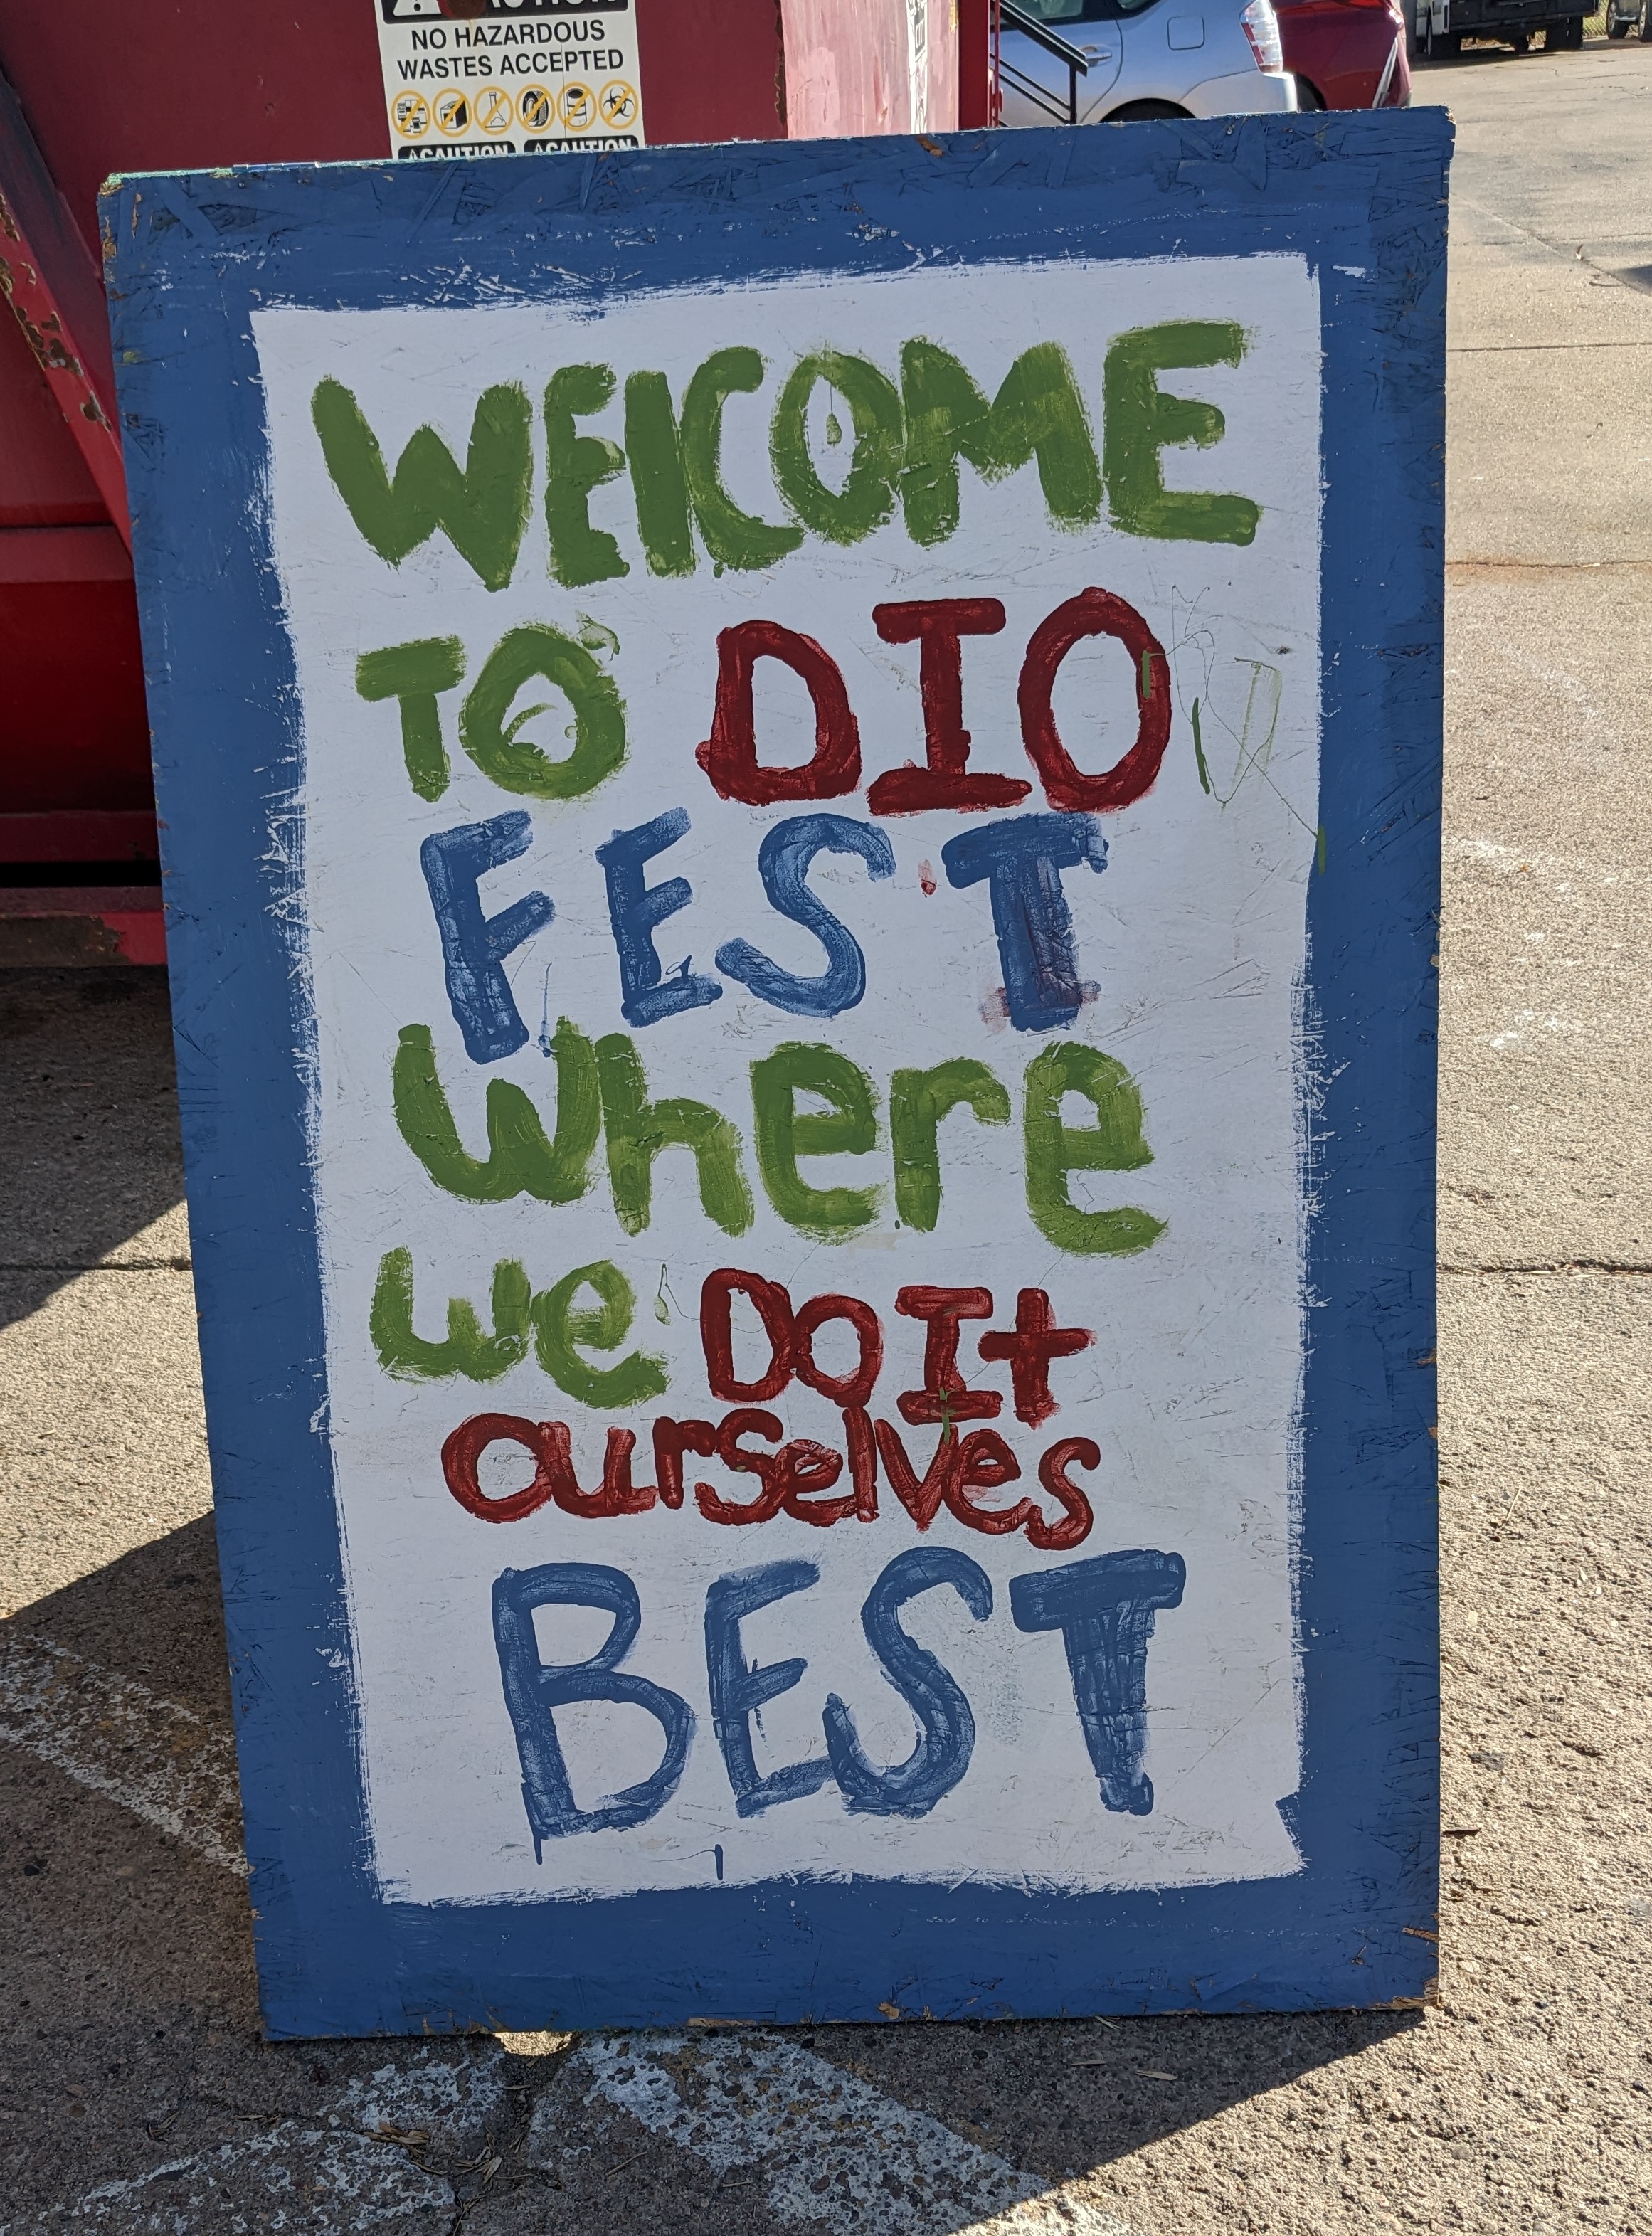 CAUTION
NO HAZARDOUS
WASTES ACCEPTED
⚠CAUTION ⚠CAUTION
WElCOME
TO DIO
FEST
where
we Do It
ourselves
BEST